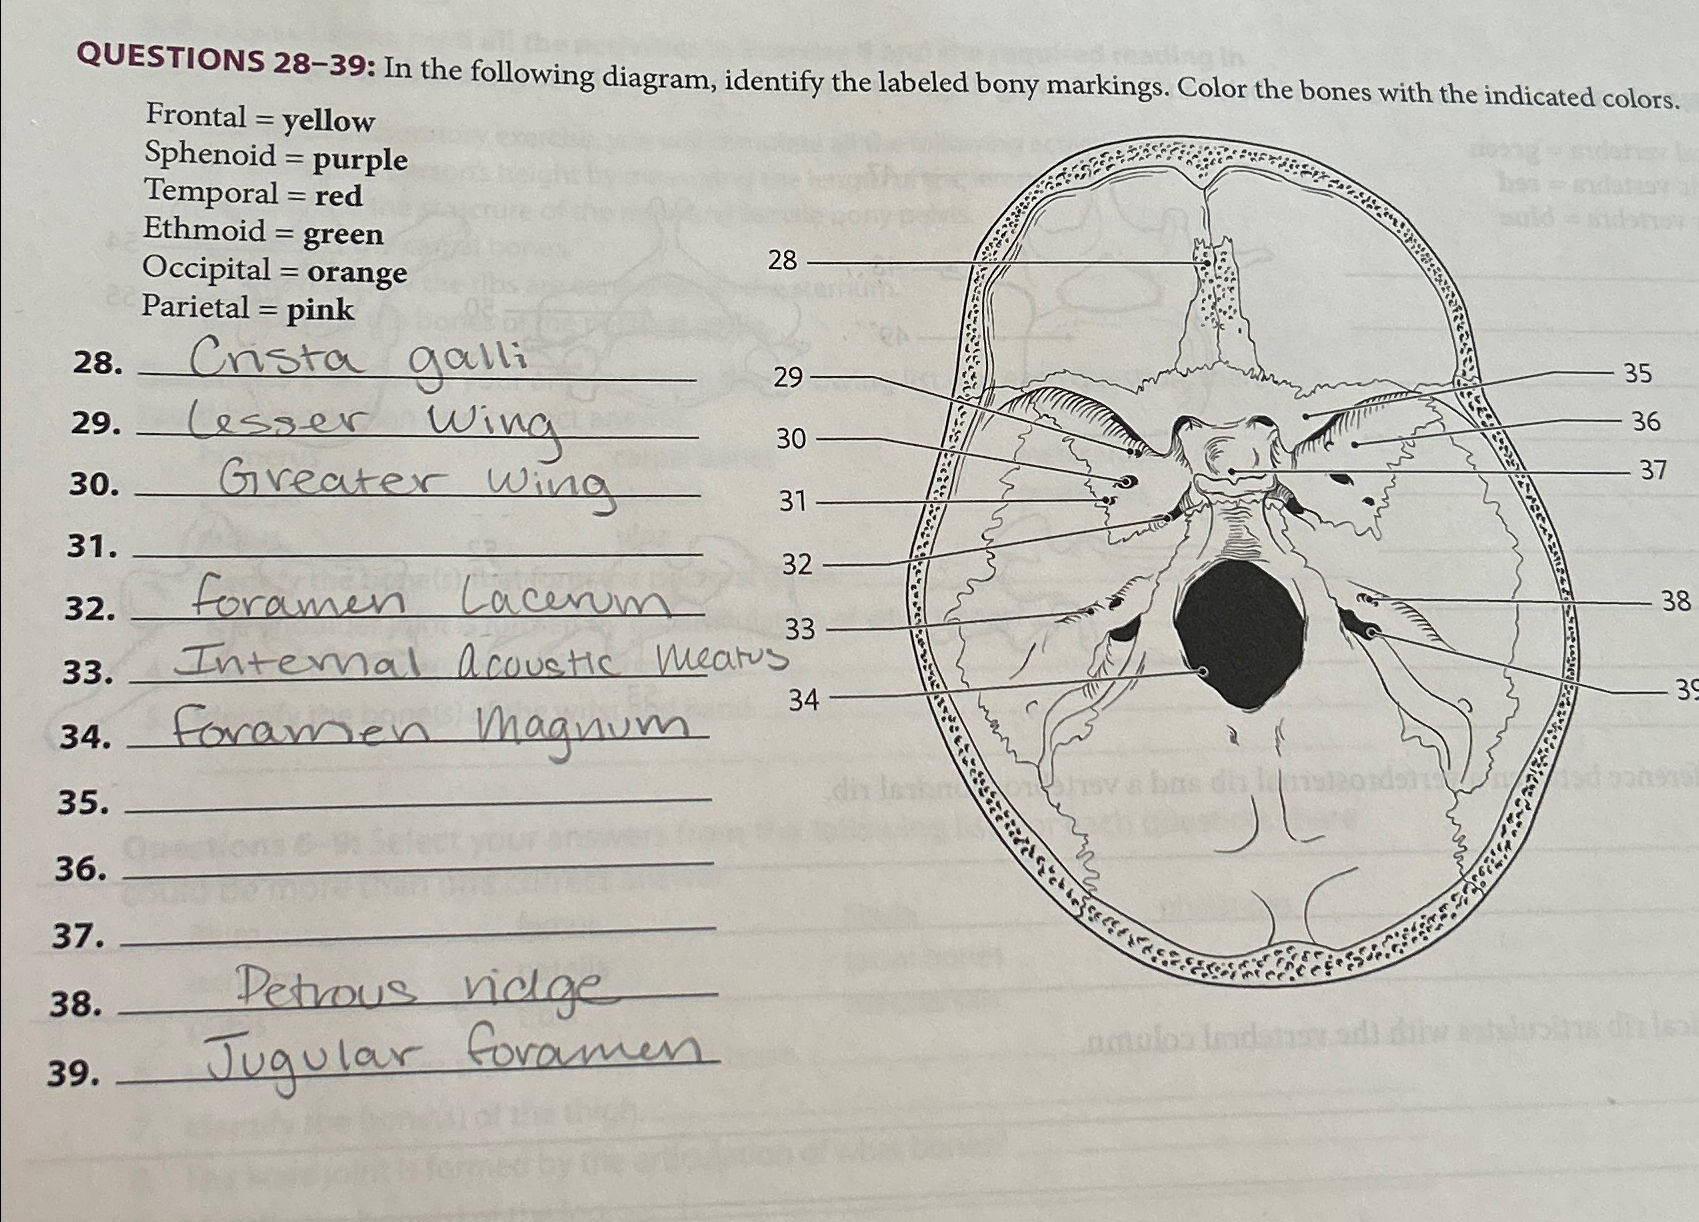 QUESTIONS 28–39: In the following diagram, identify the labeled bony markings. Color the bones with the indicated colors.
Frontal = yellow
Sphenoid = purple
Temporal = red
Ethmoid = green
Occipital = orange
Parietal = pink
28. Crista galli
29. Lesser Wing
30. Greater Wing
31.
32. foramen Lacerum
33. Internal Acoustic Meatus
34. foramen Magnum
35.
36.
37.
38. Petrous ridge
39. Jugular foramen
28
29
30
31
32
33
34
35
36
37
38
39